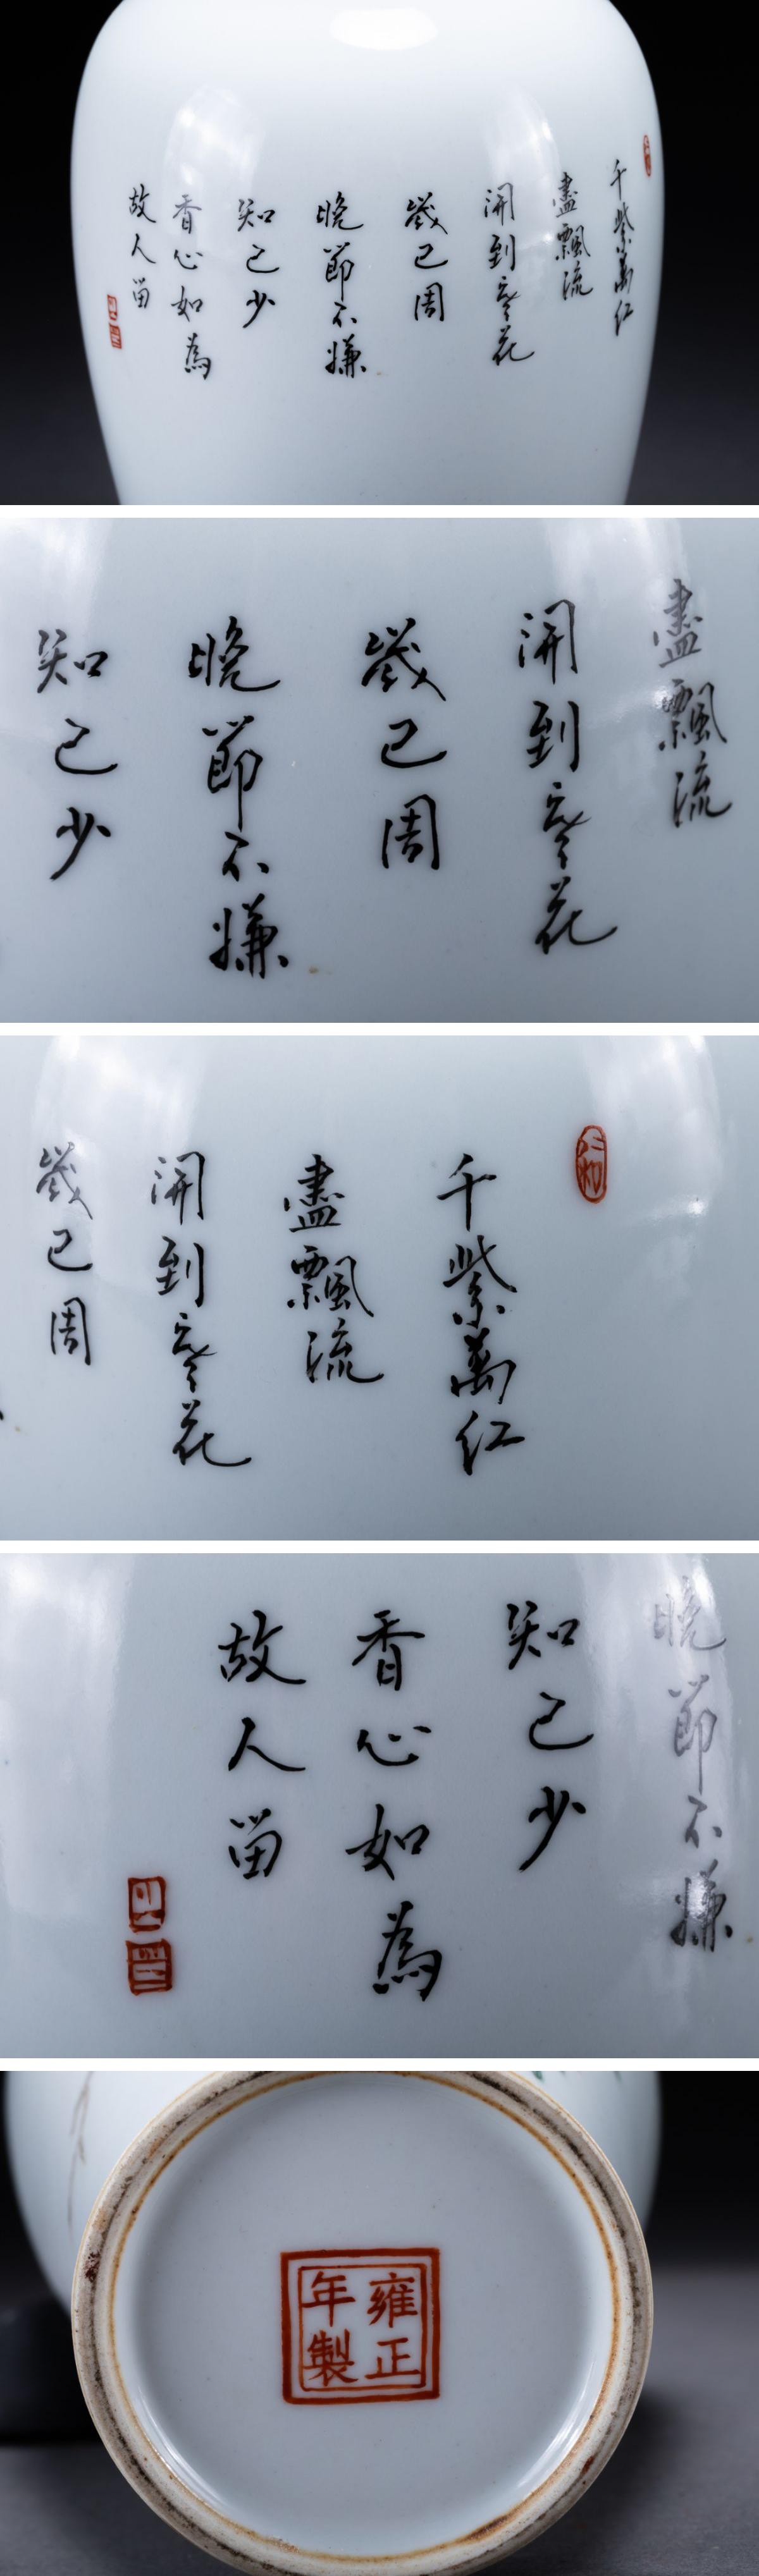 千紫萬红
盡飄流
開到寒花
歲已周
晚節不嫌
知己少
香心如為
故人留
盡飄流
開到寒花
歲已周
晚節不嫌
知己少
千紫萬红
盡飄流
開到寒花
歲已周
晚節不嫌
知己少
香心如為
故人留
雍正
年製